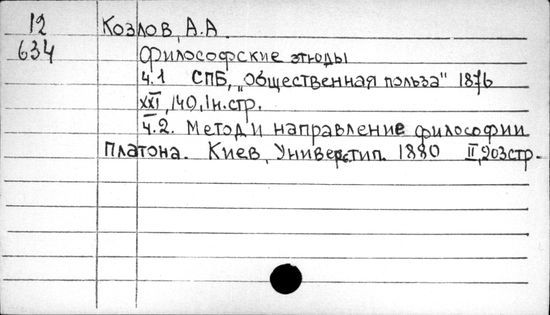 12 Козлов, А.А
634 Философские этюды
ч.1 СПБ, „Общественная польза" 1876
XXI, 140, 1н.стр.
ч.2. Метод и направление философии
Платона. Киев, Универс.тип. 1880 II, 203стр.